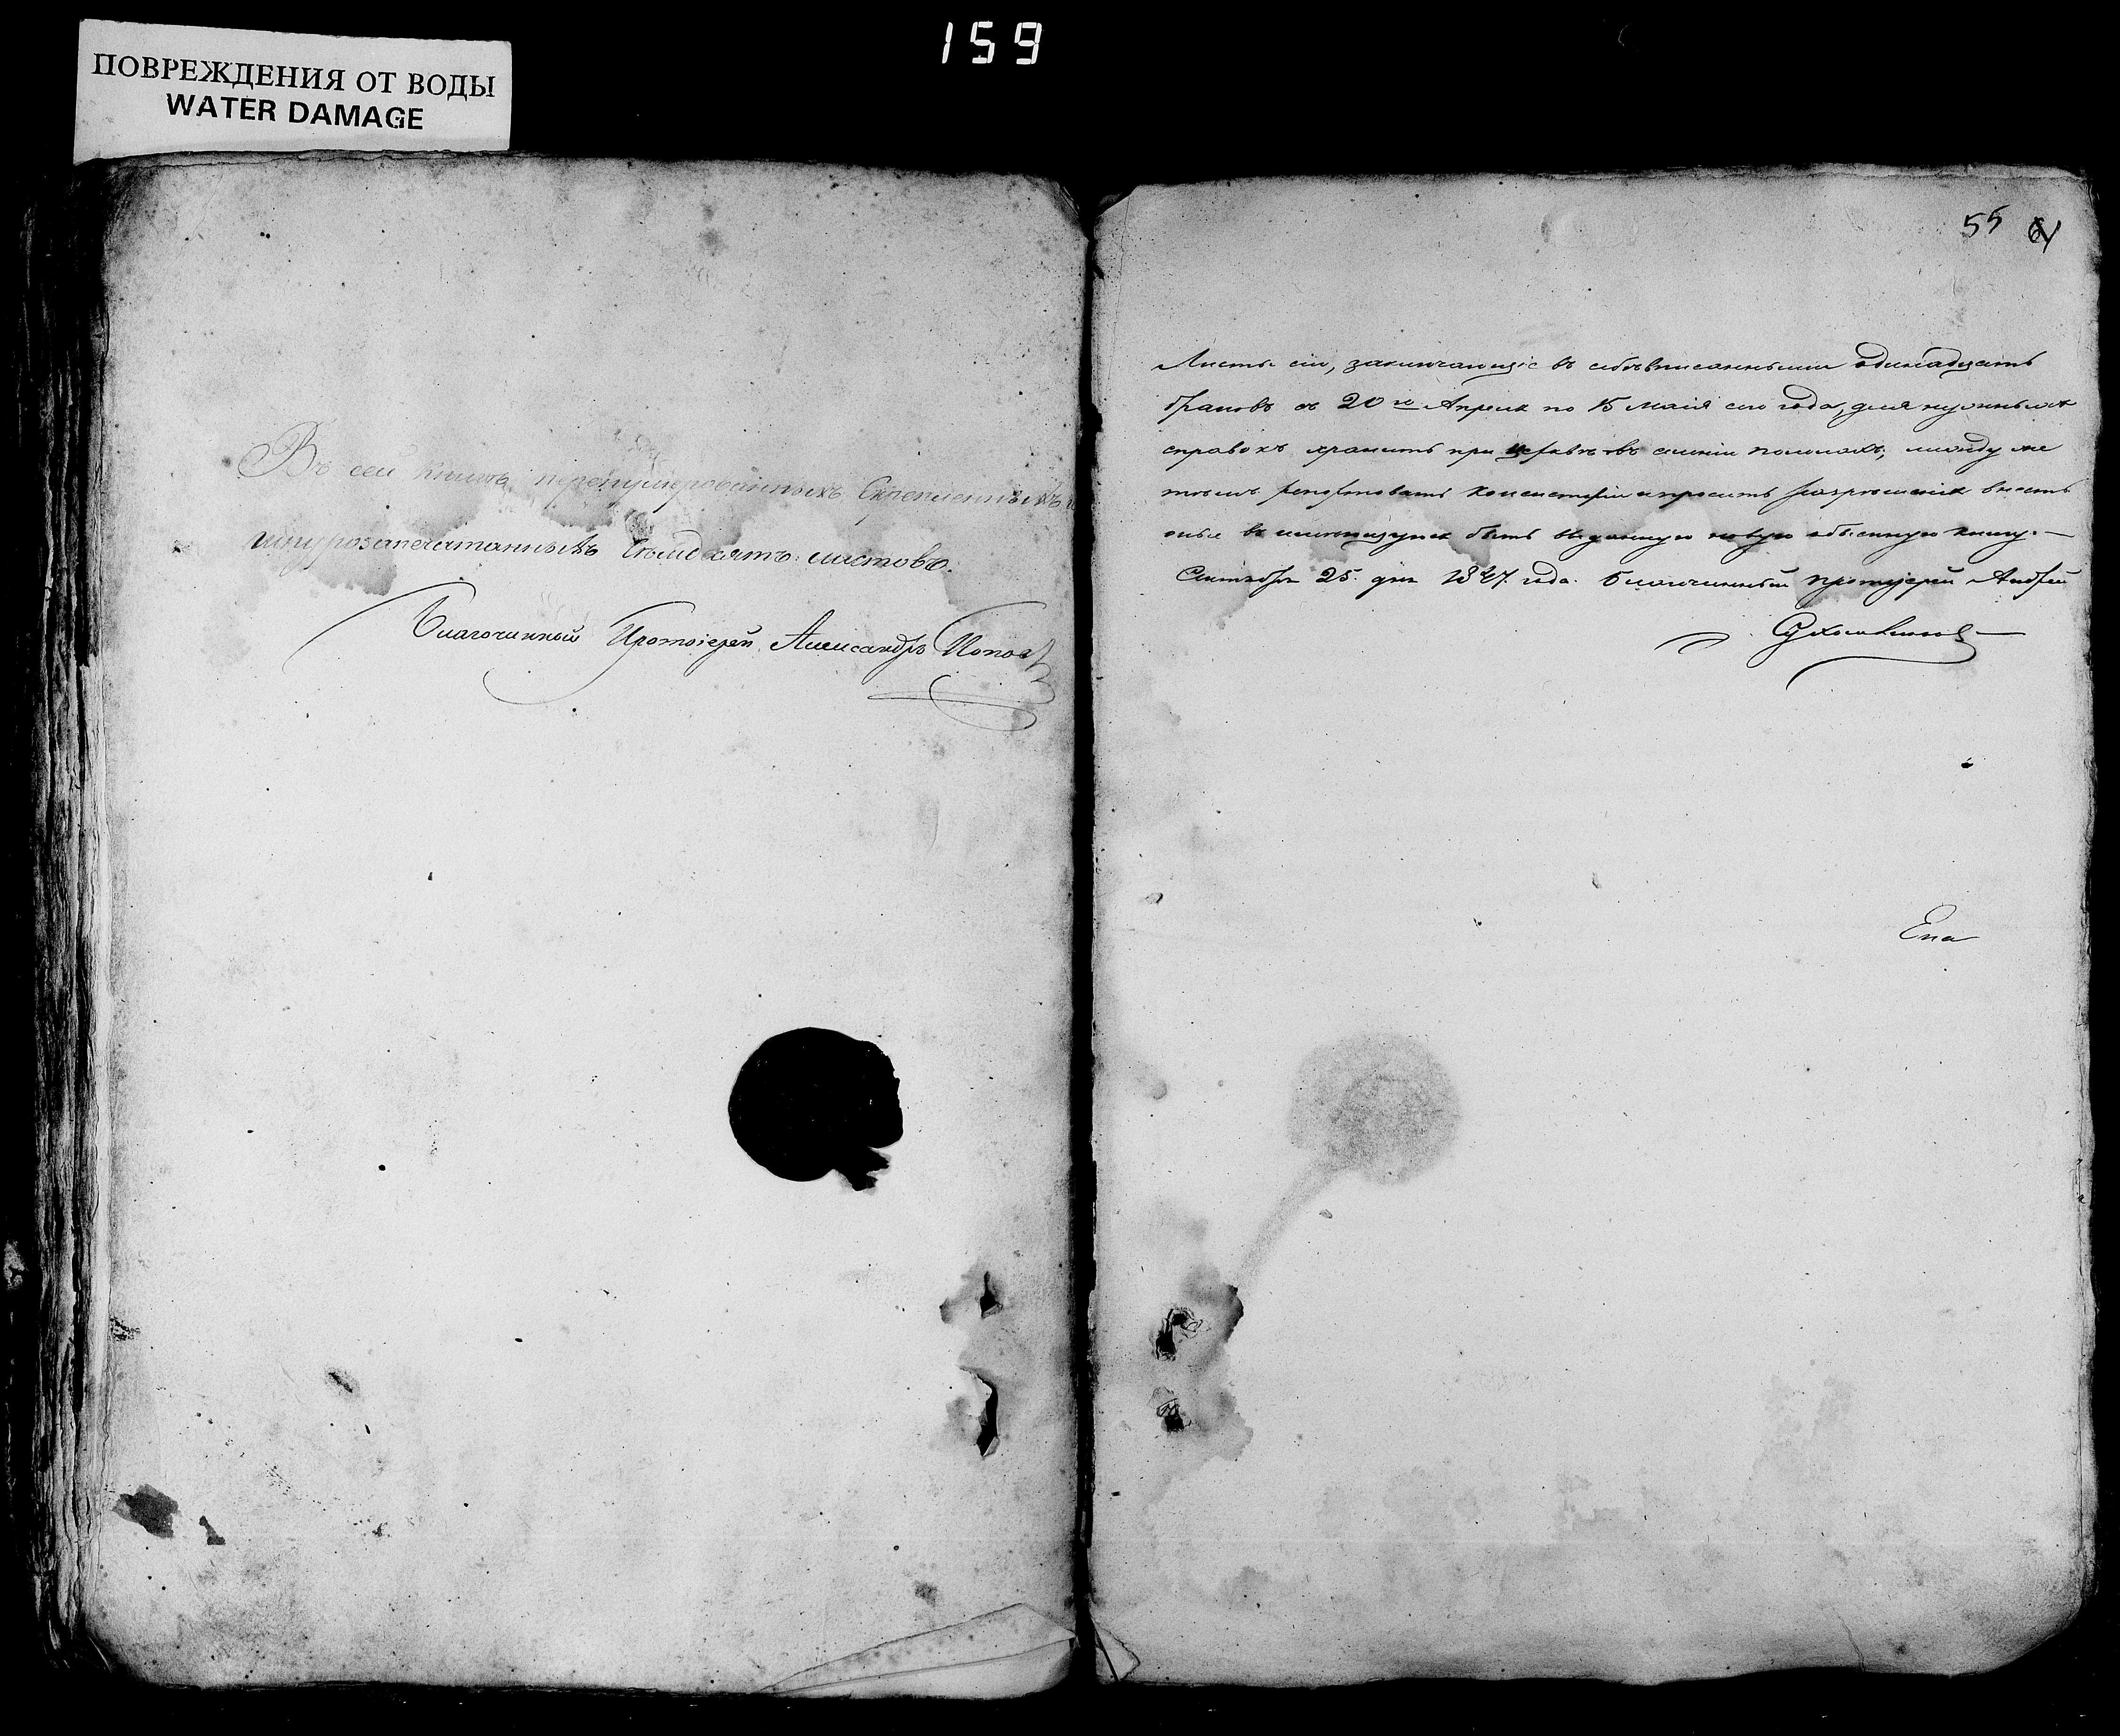 159
ПОВРЕЖДЕНИЯ ОТ ВОДЫ
WATER DAMAGE
Въ сей книгѣ перенумерованныхъ скрепленныхъ и
шнурозапечатанныхъ листовъ.
Благочинный Протоіерей Александръ Поповъ
55
Листы сіи, заключающіе въ себѣ вписанными одинадцать
браковъ съ 20го Апреля по 15 маія сего года, для нужныхъ
справокъ хранить при церкви въ поломахъ; между же
тѣмъ репортовать консисторіи и просить разрешенія внесть
оные въ быть выданную новую обыскную книгу. —
Сентября 25. дня 1847. года. Благочинный протоіерей Андрей